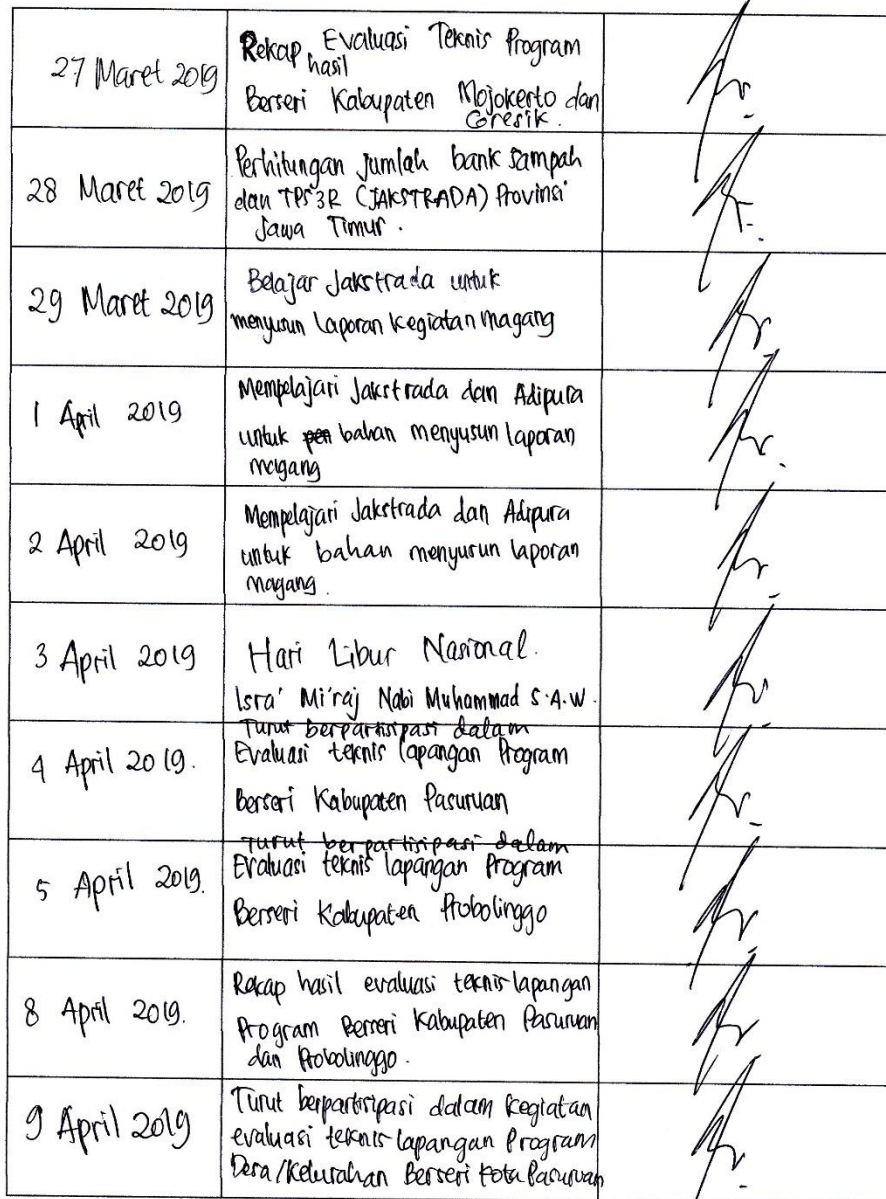 27 Maret 2019
Rekap hasil Evaluasi Teknis Program
Berseri Kabupaten Mojokerto dan
Gresik.
28 Maret 2019
Perhitungan jumlah bank sampah
dan TPS3R (JAKSTRADA) Provinsi
Jawa Timur.
29 Maret 2019
Belajar Jakstrada untuk
menyusun laporan kegiatan magang
1 April 2019
Mempelajari Jakstrada dan Adipura
untuk bahan menyusun laporan
magang
2 April 2019
Mempelajari Jakstrada dan Adipura
untuk bahan menyusun laporan
magang.
3 April 2019
Hari Libur Nasional.
Isra' Mi'raj Nabi Muhammad S.A.W.
4 April 2019.
Turut berpartisipasi dalam
Evaluasi teknis lapangan Program
Berseri Kabupaten Pasuruan
5 April 2019.
Turut berpartisipasi dalam
Evaluasi teknis lapangan Program
Berseri Kabupaten Probolinggo
8 April 2019.
Rekap hasil evaluasi teknis lapangan
Program Berseri Kabupaten Pasuruan
dan Probolinggo.
9 April 2019
Turut berpartisipasi dalam kegiatan
evaluasi teknis lapangan Program
Desa/Kelurahan Berseri Kota Pasuruan